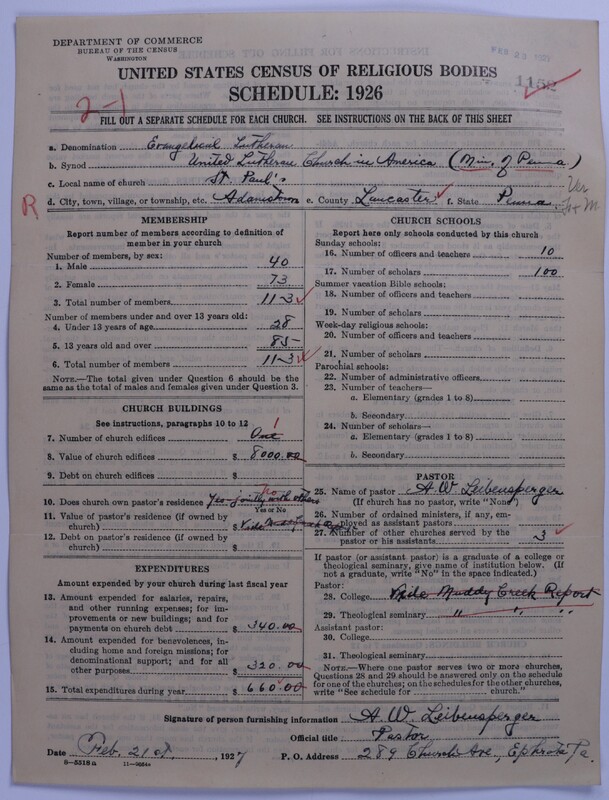 DEPARTMENT OF COMMERCE
BUREAU OF THE CENSUS
WASHINGTON
FEB 23 1927
1152
UNITED STATES CENSUS OF RELIGIOUS BODIES
SCHEDULE: 1926
2-1
FILL OUT A SEPARATE SCHEDULE FOR EACH CHURCH. SEE INSTRUCTIONS ON THE BACK OF THIS SHEET
a. Denomination Evangelical Lutheran
b. Synod United Lutheran Church in America (Min. of Penna)
c. Local name of church St. Paul's
R
d. City, town, village, or township, etc. Adamstown e. County Lancaster f. State Penna.
Ver
MEMBERSHIP
Report number of members according to definition of
member in your church
Number of members, by sex:
1. Male 40
2. Female 73
3. Total number of members 113
Number of members under and over 13 years old:
4. Under 13 years of age 28
5. 13 years old and over 85
6. Total number of members 113
NOTE.—The total given under Question 6 should be the
same as the total of males and females given under Question 3.
CHURCH BUILDINGS
See instructions, paragraphs 10 to 12
7. Number of church edifices One 1
8. Value of church edifices $ 8000.00
9. Debt on church edifices $
10. Does church own pastor's residence Yes-jointly with others
Yes or No
11. Value of pastor's residence (if owned by
church) $ Vide Muddy Creek Report
12. Debt on pastor's residence (if owned by
church) $
EXPENDITURES
Amount expended by your church during last fiscal year
13. Amount expended for salaries, repairs,
and other running expenses; for im-
provements or new buildings; and for
payments on church debt $ 340.00
14. Amount expended for benevolences, in-
cluding home and foreign missions; for
denominational support; and for all
other purposes $ 320.00
15. Total expenditures during year $ 660.00
CHURCH SCHOOLS
Report here only schools conducted by this church
Sunday schools:
16. Number of officers and teachers 10
17. Number of scholars 100
Summer vacation Bible schools:
18. Number of officers and teachers
19. Number of scholars
Week-day religious schools:
20. Number of officers and teachers
21. Number of scholars
Parochial schools:
22. Number of administrative officers
23. Number of teachers—
a. Elementary (grades 1 to 8)
b. Secondary
24. Number of scholars—
a. Elementary (grades 1 to 8)
b. Secondary
PASTOR
25. Name of pastor A. W. Leibensperger
(If church has no pastor, write "None")
26. Number of ordained ministers, if any, em-
ployed as assistant pastors
27. Number of other churches served by the
pastor or his assistants 3
If pastor (or assistant pastor) is a graduate of a college or
theological seminary, give name of institution below. (If
not a graduate, write "No" in the space indicated.)
Pastor:
28. College Vide Muddy Creek Report
29. Theological seminary " " "
Assistant pastor:
30. College
31. Theological seminary
NOTE.—Where one pastor serves two or more churches,
Questions 28 and 29 should be answered only on the schedule
for one of the churches; on the schedules for the other churches,
write "See schedule for church."
Signature of person furnishing information A. W. Leibensperger
Official title Pastor
Date Feb. 21st, 1927 P. O. Address 289 Church Ave, Ephrata Pa.
8-5318a 11-9554a